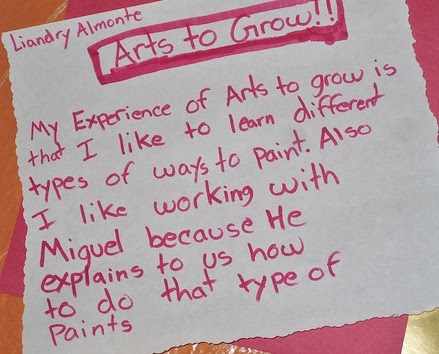 Liandry Almonte
Arts to Grow!!
My Experience of Arts to grow is
that I like to learn different
types of ways to paint. Also
I like working with
Miguel because He
explains to us how
to do that type of
Paints